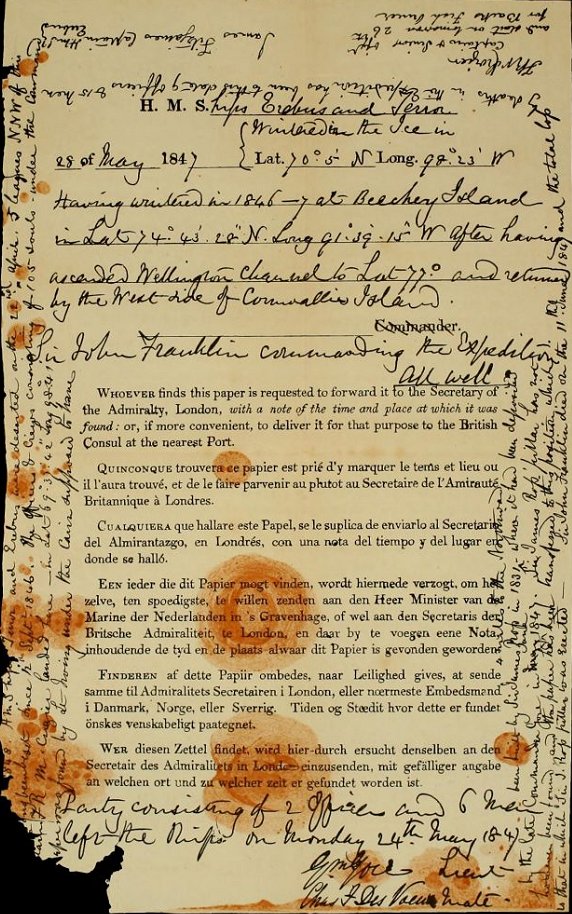 H. M. Ships Erebus and Terror
Wintered in the Ice in
28 of May 1847 Lat. 70° 5' N Long. 98° 23' W
Having wintered in 1846–7 at Beechey Island
in Lat 74° 43' 28" N. Long 91° 39' 15" W After having
ascended Wellington Channel to Lat 77° and returned
by the West side of Cornwallis Island.
Commander.
Sir John Franklin commanding the Expedition
All well
WHOEVER finds this paper is requested to forward it to the Secretary of
the Admiralty, London, with a note of the time and place at which it was
found: or, if more convenient, to deliver it for that purpose to the British
Consul at the nearest Port.
QUINCONQUE trouvera ce papier est prié d'y marquer le tems et lieu ou
il l'aura trouvé, et de le faire parvenir au plutot au Secretaire de l'Amirauté
Britannique à Londres.
CUALQUIERA que hallare este Papel, se le suplica de enviarlo al Secretario
del Almirantazgo, en Londrés, con una nota del tiempo y del lugar en
donde se halló.
EEN ieder die dit Papier mogt vinden, wordt hiermede verzogt, om het
zelve, ten spoedigste, te willen zenden aan den Heer Minister van de
Marine der Nederlanden in 's Gravenhage, of wel aan den Secretaris der
Britsche Admiraliteit, te London, en daar by te voegen eene Nota,
inhoudende de tyd en de plaats alwaar dit Papier is gevonden geworden
FINDEREN af dette Papiir ombedes, naar Leilighed gives, at sende
samme til Admiralitets Secretairen i London, eller nœrmeste Embedsmand
i Danmark, Norge, eller Sverrig. Tiden og Stœdit hvor dette er fundet
önskes venskabeligt paategnet.
WER diesen Zettel findet, wird hier-durch ersucht denselben an den
Secretair des Admiralitets in London einzusenden, mit gefälliger angabe
an welchen ort und zu welcher zeit er gefundet worden ist.
Party consisting of 2 Officers and 6 Men
left the Ships on Monday 24th May 1847
Gm Gore Lieut
Chas F Des Voeux Mate.
848 H M Ships Terror and Erebus were deserted on the 22nd April 5 leagues NNW of this
been beset since 12th Septr 1846. The Officers & Crews consisting of 105 souls under the Command
tain F R M Crozier landed here – in Lat 69° 37' 42" Long 98° 41'
aper was found by Lt Irving under the Cairn supposed to have
been built by Sir James Ross in 1831 4 miles to the Northward where it had been deposited
by the late Commander Gore in June 1847. Sir James Ross' pillar has not
however been found and the paper has been transferred to this position which
is that in which Sir J. Ross pillar was erected – Sir John Franklin died on the 11 June 1847 and the total loss
by deaths in the Expedition has been to this date 9 officers & 15 men
James Fitzjames Captain HMS Erebus
F R M Crozier
Captain & Senior Offr
and start on tomorrow 26th
for Backs Fish River